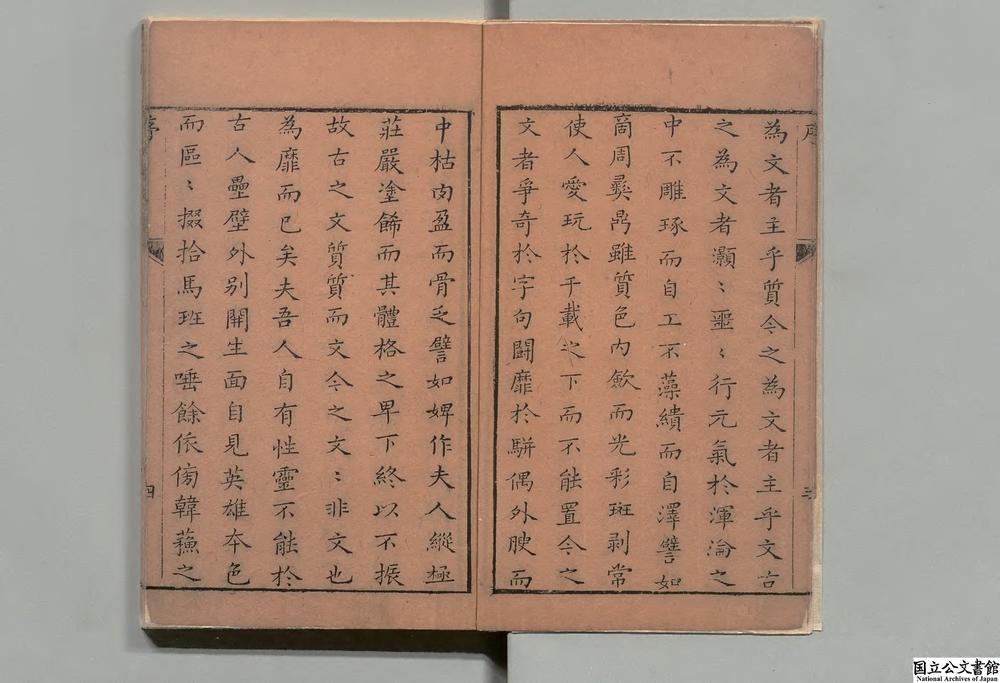 為文者主乎質今之為文者主乎文古
之為文者灝〻噩〻行元氣於渾淪之
中不雕琢而自工不藻繢而自澤譬如
商周彝鼎雖質色內歛而光彩斑剥常
使人愛玩於千載之下而不能置今之
文者爭奇於字句鬪靡於駢偶外腴而
中枯肉盈而骨乏譬如婢作夫人縱極
莊嚴塗餙而其體格之卑下終以不振
故古之文質質而文今之文〻非文也
為靡而已矣夫吾人自有性靈不能於
古人壘壁外别開生面自見英雄本色
而區〻掇拾馬班之唾餘依傍韓蘓之
序
三
四
国立公文書館
National Archives of Japan